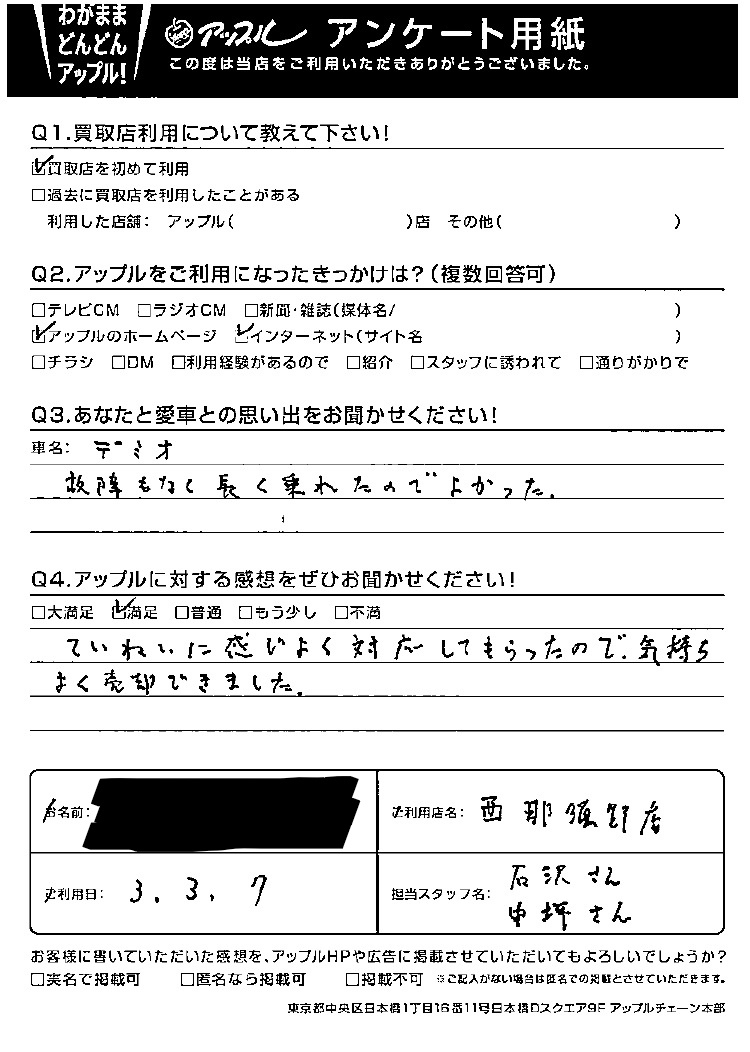 わがまま
どんどん
アップル!
アップル アンケート用紙
この度は当店をご利用いただきありがとうございました。
Q1.買取店利用について教えて下さい!
☑買取店を初めて利用
□過去に買取店を利用したことがある
利用した店舗: アップル( )店 その他( )
Q2.アップルをご利用になったきっかけは?(複数回答可)
□テレビCM □ラジオCM □新聞・雑誌(媒体名/ )
☑アップルのホームページ ☑インターネット(サイト名 )
□チラシ □DM □利用経験があるので □紹介 □スタッフに誘われて □通りがかりで
Q3.あなたと愛車との思い出をお聞かせください!
車名: デミオ
故障もなく長く乗れたのでよかった。
Q4.アップルに対する感想をぜひお聞かせください!
□大満足 ☑満足 □普通 □もう少し □不満
ていねいに感じよく対応してもらったので、気持ち
よく売却できました。
お名前:
ご利用店名: 西那須野店
ご利用日: 3.3.7
担当スタッフ名: 石沢さん
中坪さん
お客様に書いていただいた感想を、アップルHPや広告に掲載させていただいてもよろしいでしょうか?
□実名で掲載可 □匿名なら掲載可 □掲載不可 ※ご記入がない場合は匿名での掲載とさせていただきます。
東京都中央区日本橋1丁目16番11号日本橋Dスクエア9F アップルチェーン本部